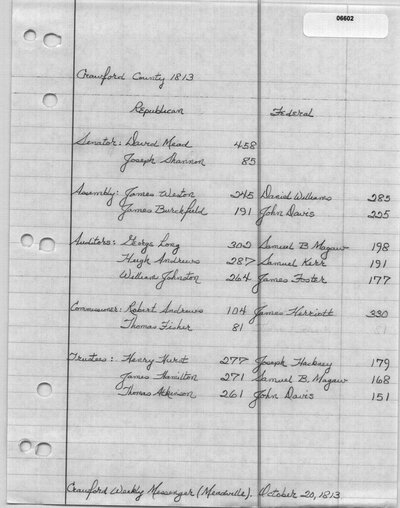 06602
Crawford County 1813
Republican Federal
Senator: David Mead 458
Joseph Shannon 85
Assembly: James Weston 245 Daniel Williams 285
James Burchfield 191 John Davis 225
Auditors: George Long 302 Samuel B. Magaw 198
Hugh Andrews 287 Samuel Kerr 191
William Johnston 264 James Foster 177
Commissioner: Robert Andrews 104 James Herriott 330
Thomas Fisher 81
Trustees: Henry Hurst 277 Joseph Hackney 179
James Hamilton 271 Samuel B. Magaw 168
Thomas Atkinson 261 John Davis 151
Crawford Weekly Messenger (Meadville). October 20, 1813